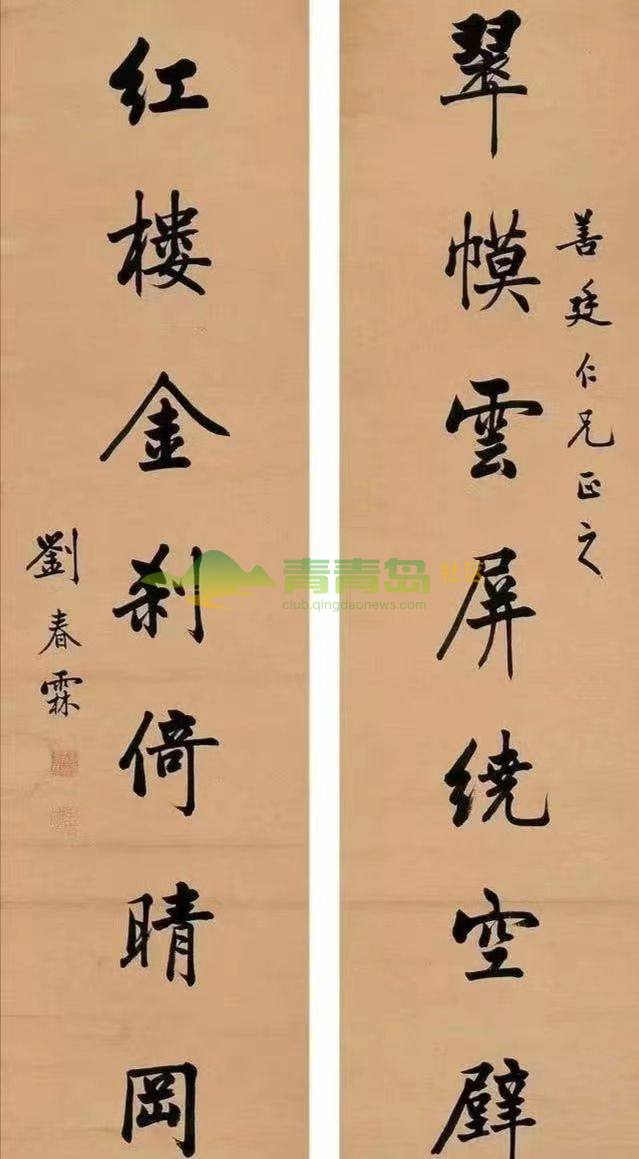 善廷仁兄正之
翠幙雲屏繞空壁
紅樓金刹倚晴岡
劉春霖
青青岛社区
club.qingdaonews.com